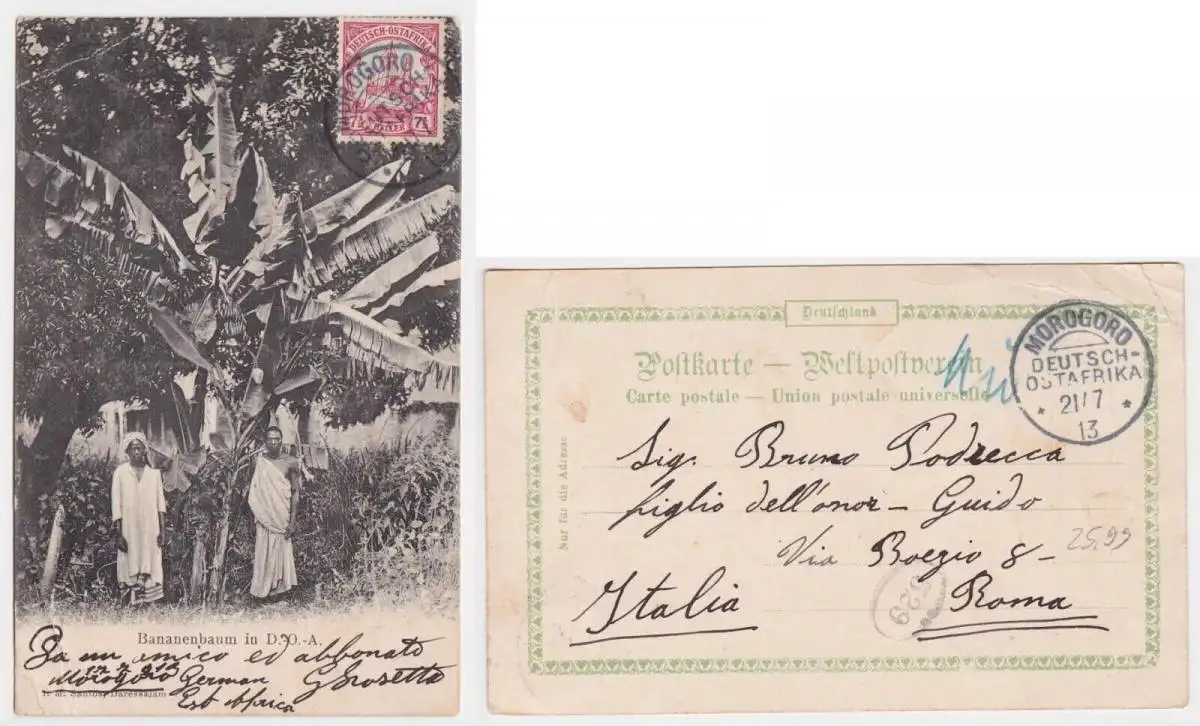 DEUTSCH-OSTAFRIKA
MOROGORO
7½ HELLER 7½
13
Bananenbaum in D.-O.-A.
Da un amico ed abbonato
Morogoro German
Est Africa
Santos, Daressalam
Deutschland
Postkarte — Weltpostverein
Carte postale — Union postale universelle
MOROGORO
DEUTSCH-
OSTAFRIKA
* 21/7 *
13
Nur für die Adresse
Sig. Bruno Podrecca
figlio dell'onor - Guido
Via Boezio 8 -
25,99
Italia
Roma